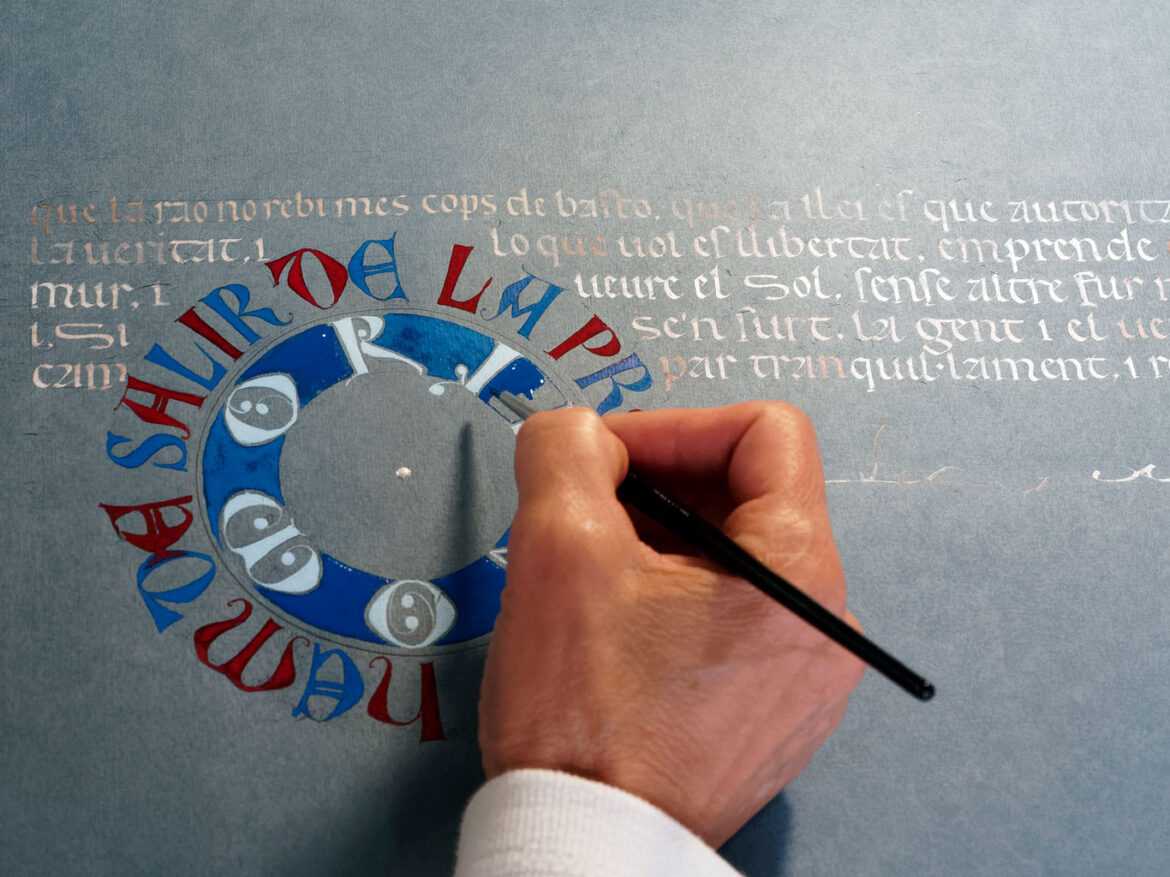 que la rao no rebi mes cops de basto. que la llei es que
la veritat, i lo que vol es llibertat. emprende
mur, i veure el Sol, sense altre fur
i, Si se'n surt. la gent i el
cam par tranquil·lament, i
HEM DE SALIR DE LA PR